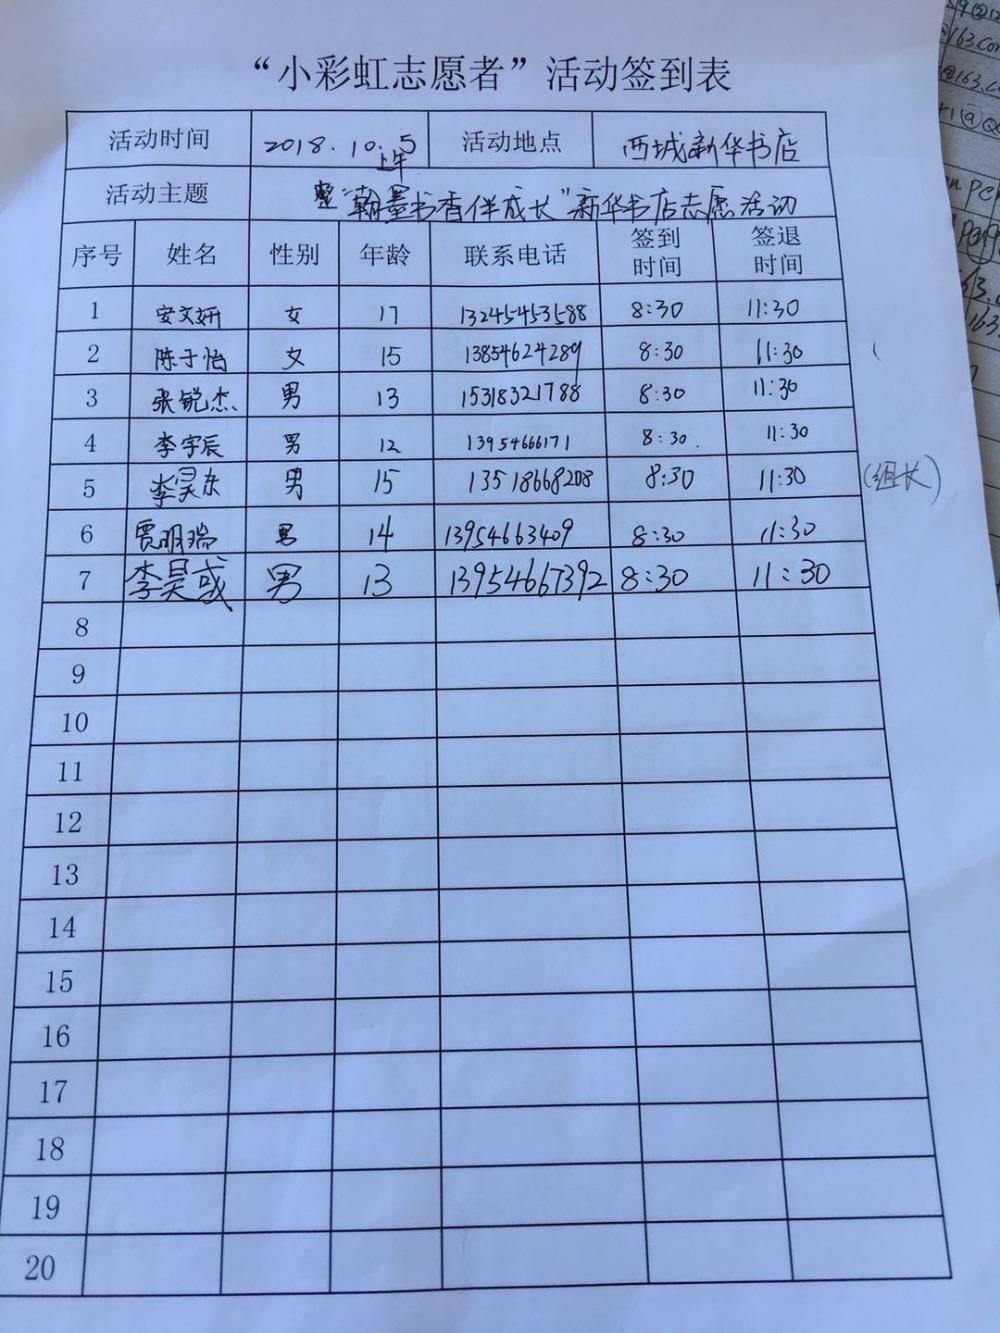 “小彩虹志愿者”活动签到表
活动时间 2018.10.5 上午 活动地点 西城新华书店
活动主题 “翰墨书香伴成长”新华书店志愿活动
序号 姓名 性别 年龄 联系电话 签到时间 签退时间
1 安文妍 女 17 13245453588 8:30 11:30
2 陈子怡 女 15 13854624289 8:30 11:30
3 张锐杰 男 13 15318321788 8:30 11:30
4 李宇辰 男 12 1395466171 8:30. 11:30
5 李昊东 男 15 13518668208 8:30 11:30 (组长)
6 贾明瑞 男 14 13954663409 8:30 11:30
7 李昊彧 男 13 13954667392 8:30 11:30
8
9
10
11
12
13
14
15
16
17
18
19
20